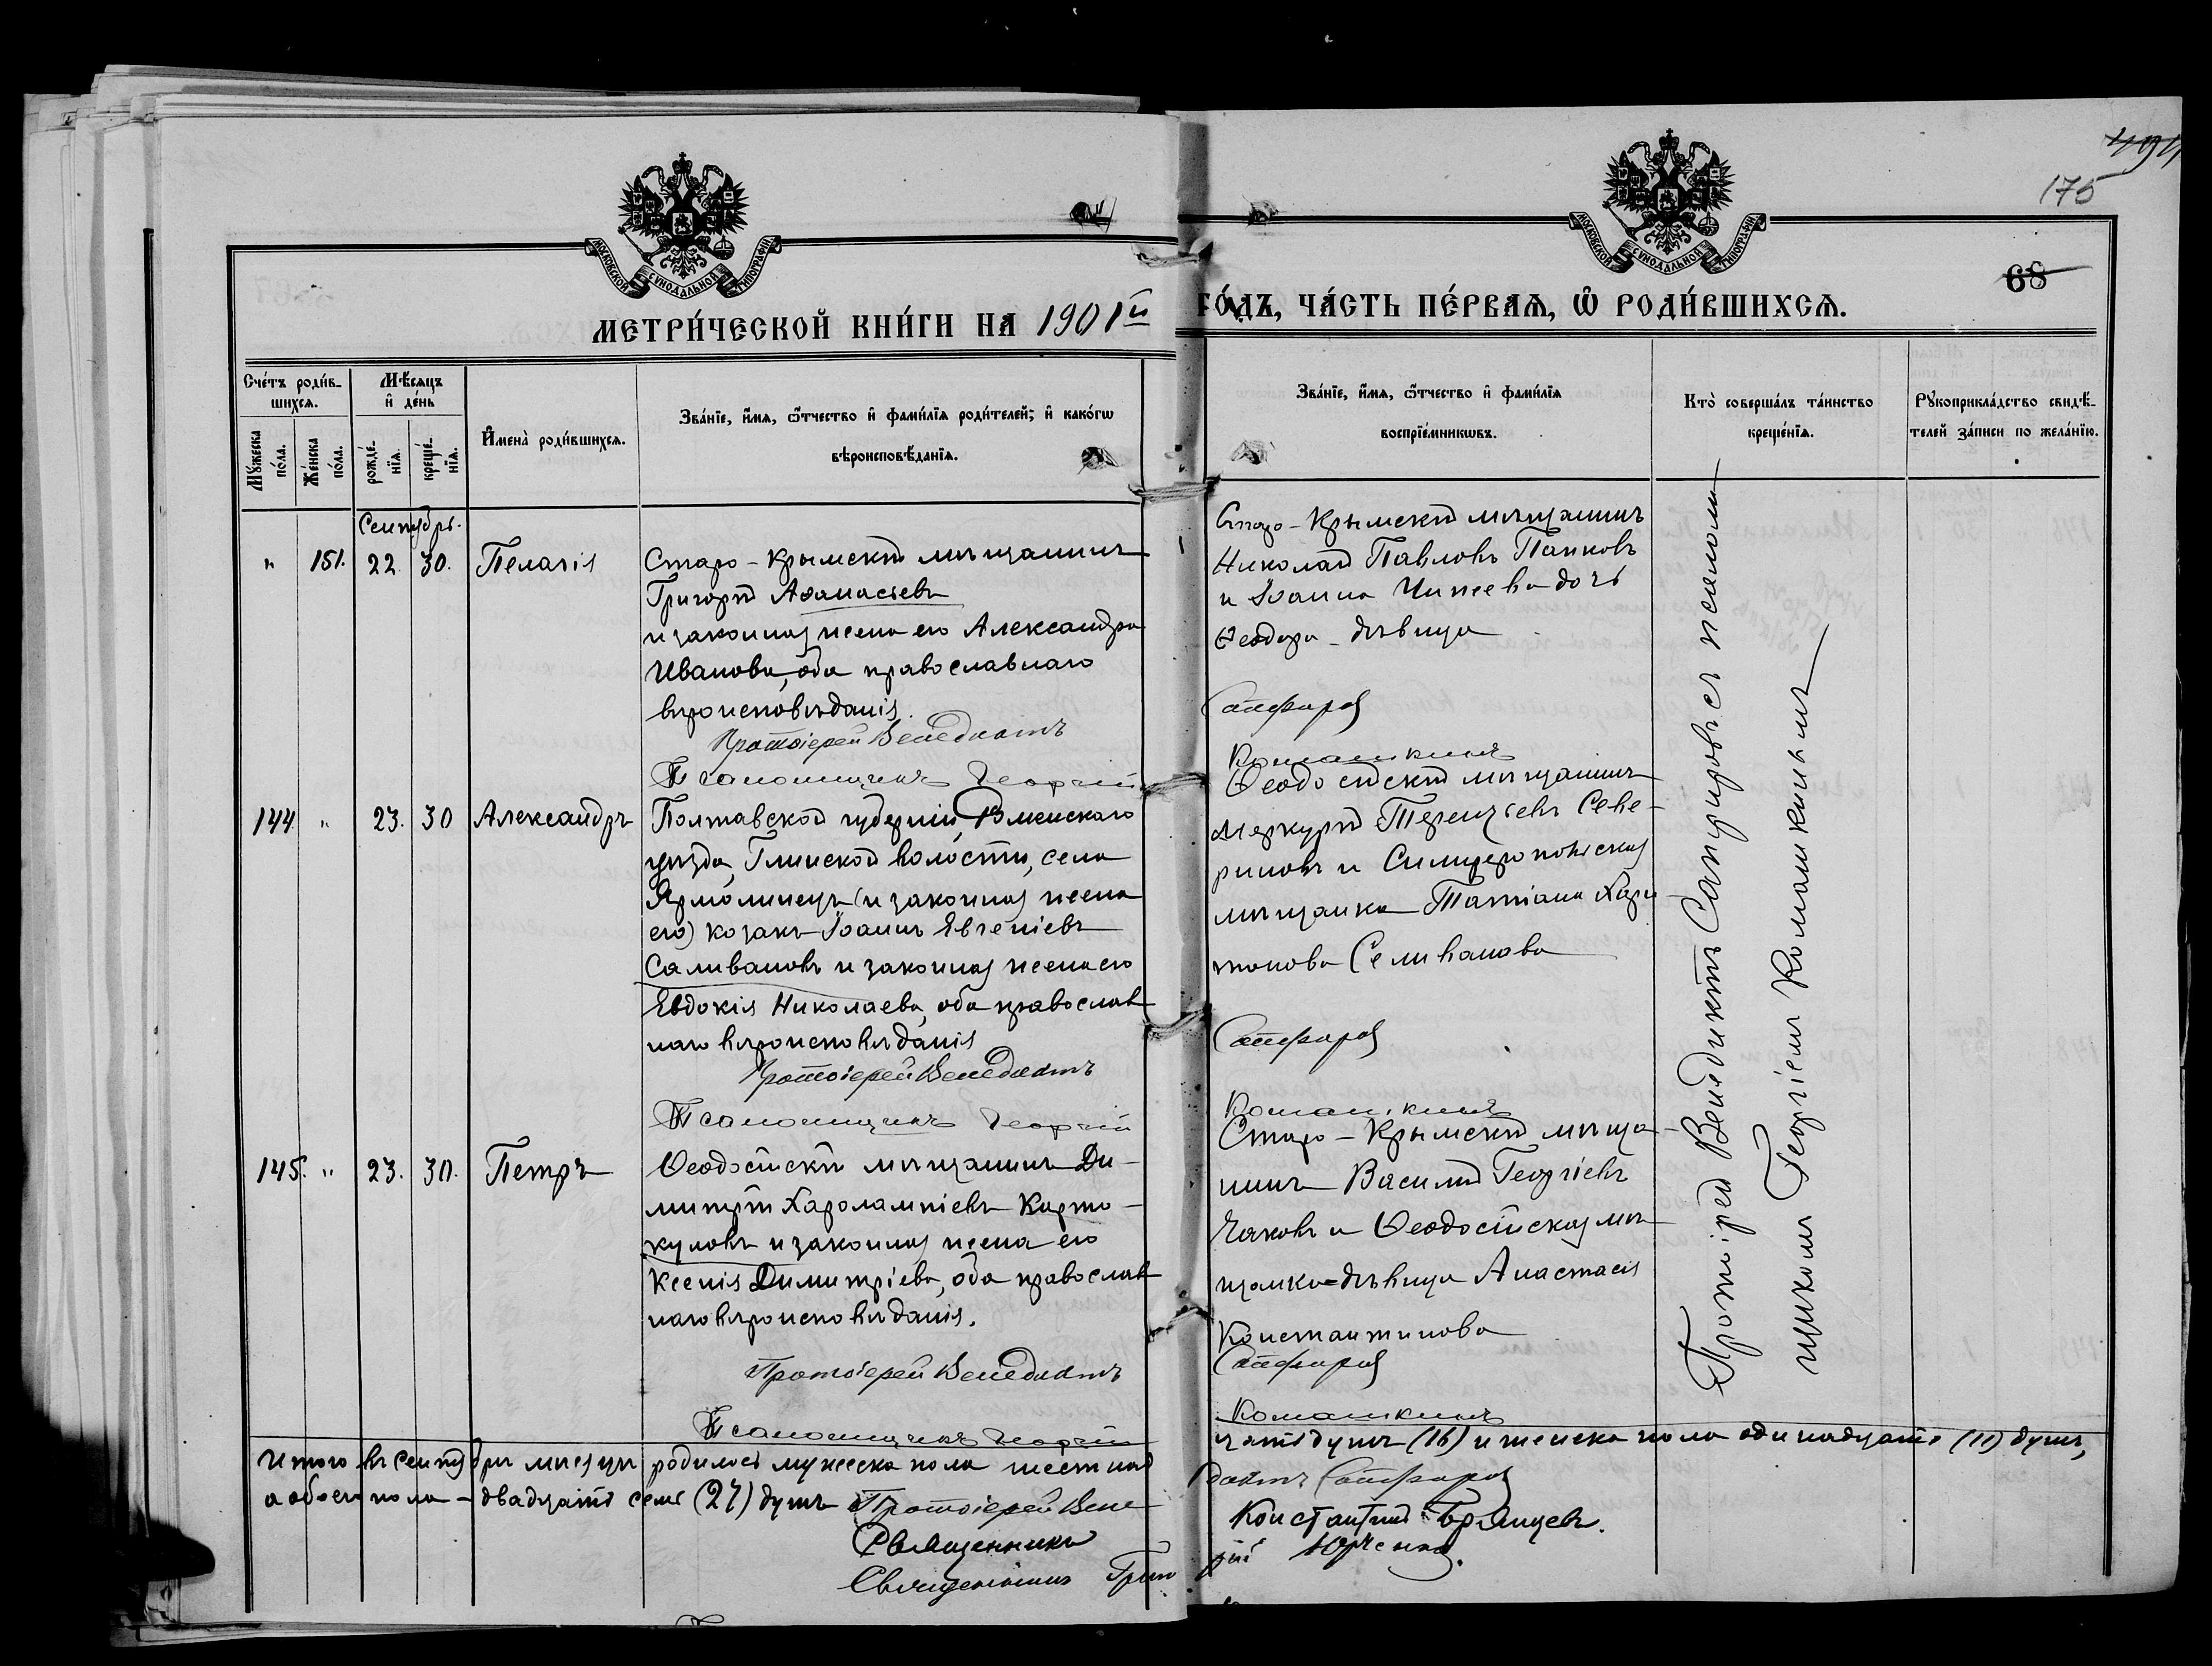 494
175
68
МОСКОВСКОЙ СѴНОДАЛЬНОЙ ТИПОГРАФІИ
МОСКОВСКОЙ СѴНОДАЛЬНОЙ ТИПОГРАФІИ
МЕТРИ́ЧЕСКОЙ КНИ́ГИ НА 1901й ГО́ДЪ, ЧА́СТЬ ПЕ́РВАЯ, Ѿ РОДИ́ВШИХСЯ.
Сче́тъ роди́в-
шихсѧ.
Мꙋжеска
по́ла.
Же́нска
по́ла.
Мѣ́сѧцъ
и҆ де́нь
рожде́-
нїѧ.
креще́-
нїѧ.
И҆мена̀ роди́вшихсѧ.
Зва́нїе, и҆́мѧ, ѻ҆́тчество и҆ фами́лїѧ роди́телей; и҆ како́гѡ
вѣроисповѣ́данїѧ.
Зва́нїе, и҆́мѧ, ѻ҆́тчество и҆ фами́лїѧ
воспрїе́мникѡвъ.
Кто̀ соверша́лъ та́инство
креще́нїѧ.
Рꙋкоприкла́дство свидѣ́-
телей за́писи по жела́нїю.
Сентябрь.
" 151. 22. 30. Пелагія
Старо-Крымскій мѣщанинъ
Григорій Аѳанасьевъ
и законная жена его Александра
Иванова, оба православнаго
вѣроисповѣданія.
Протоіерей Венедиктъ
Псаломщикъ Георгій
Старо-Крымскій мѣщанинъ
Николай Павловъ Папковъ
и Іоанна дочь
Ѳеодора - дѣвица
Сапфировъ
Комашкинъ
144 " 23. 30 Александръ
Полтавской губерніи, Роменскаго
уѣзда, Глинской волости, села
Ярмолинецъ (и законная жена
его) козакъ Іоаннъ Евгеніевъ
Саливановъ и законная жена его
Евдокія Николаева, оба православ
наго вѣроисповѣданія
Протоіерей Венедиктъ
Псаломщикъ Георгій
Ѳеодосійскій мѣщанинъ
Меркурій Терентьевъ Севе-
риновъ и Симферопольская
мѣщанка Татіана Хари
тонова Селиванова
Сапфировъ
Комашкинъ
145. " 23. 30. Петръ
Ѳеодосійскій мѣщанинъ Ди-
митрій Харолампіевъ Карто-
жуловъ и законная жена его
Ксенія Димитріева, оба православ
наго вѣроисповѣданія.
Протоіерей Венедиктъ
Псаломщикъ Георгій
Старо-Крымскій мѣща-
нинъ Василій Георгіевъ
Чаковъ и Ѳеодосійская мѣ
щанка-дѣвица Анастасія
Константинова
Сапфировъ
Комашкинъ
Протоіерей Венедиктъ Сапфировъ съ псалом-
щикомъ Георгіемъ Комашкинымъ
Итого въ Сентябрѣ мѣсяцѣ родилось мужеска пола шестнад
цать душъ (16) и женска пола одинадцать (11) душъ,
а обоего пола - двадцать семь (27) душъ Протоіерей Вене
диктъ Сапфировъ
Священникъ Константинъ Брянцевъ.
Священникъ Григо
рій Юрченко.